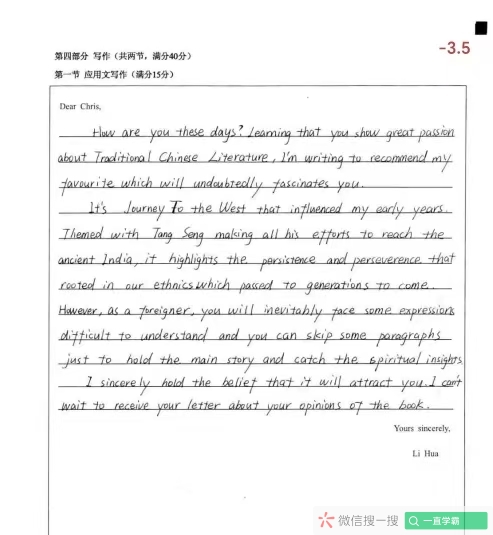 -3.5
第四部分 写作（共两节，满分40分）
第一节 应用文写作（满分15分）
Dear Chris,
How are you these days? Learning that you show great passion
about Traditional Chinese Literature, I'm writing to recommend my
favourite which will undoubtedly fascinates you.
It's Journey To the West that influenced my early years.
Themed with Tang Seng making all his efforts to reach the
ancient India, it highlights the persistence and perseverence that
rooted in our ethnics which passed to generations to come.
However, as a foreigner, you will inevitably face some expressions
difficult to understand and you can skip some paragraphs
just to hold the main story and catch the spiritual insights.
I sincerely hold the belief that it will attract you. I can't
wait to receive your letter about your opinions of the book.
Yours sincerely,
Li Hua
微信搜一搜 一直学霸